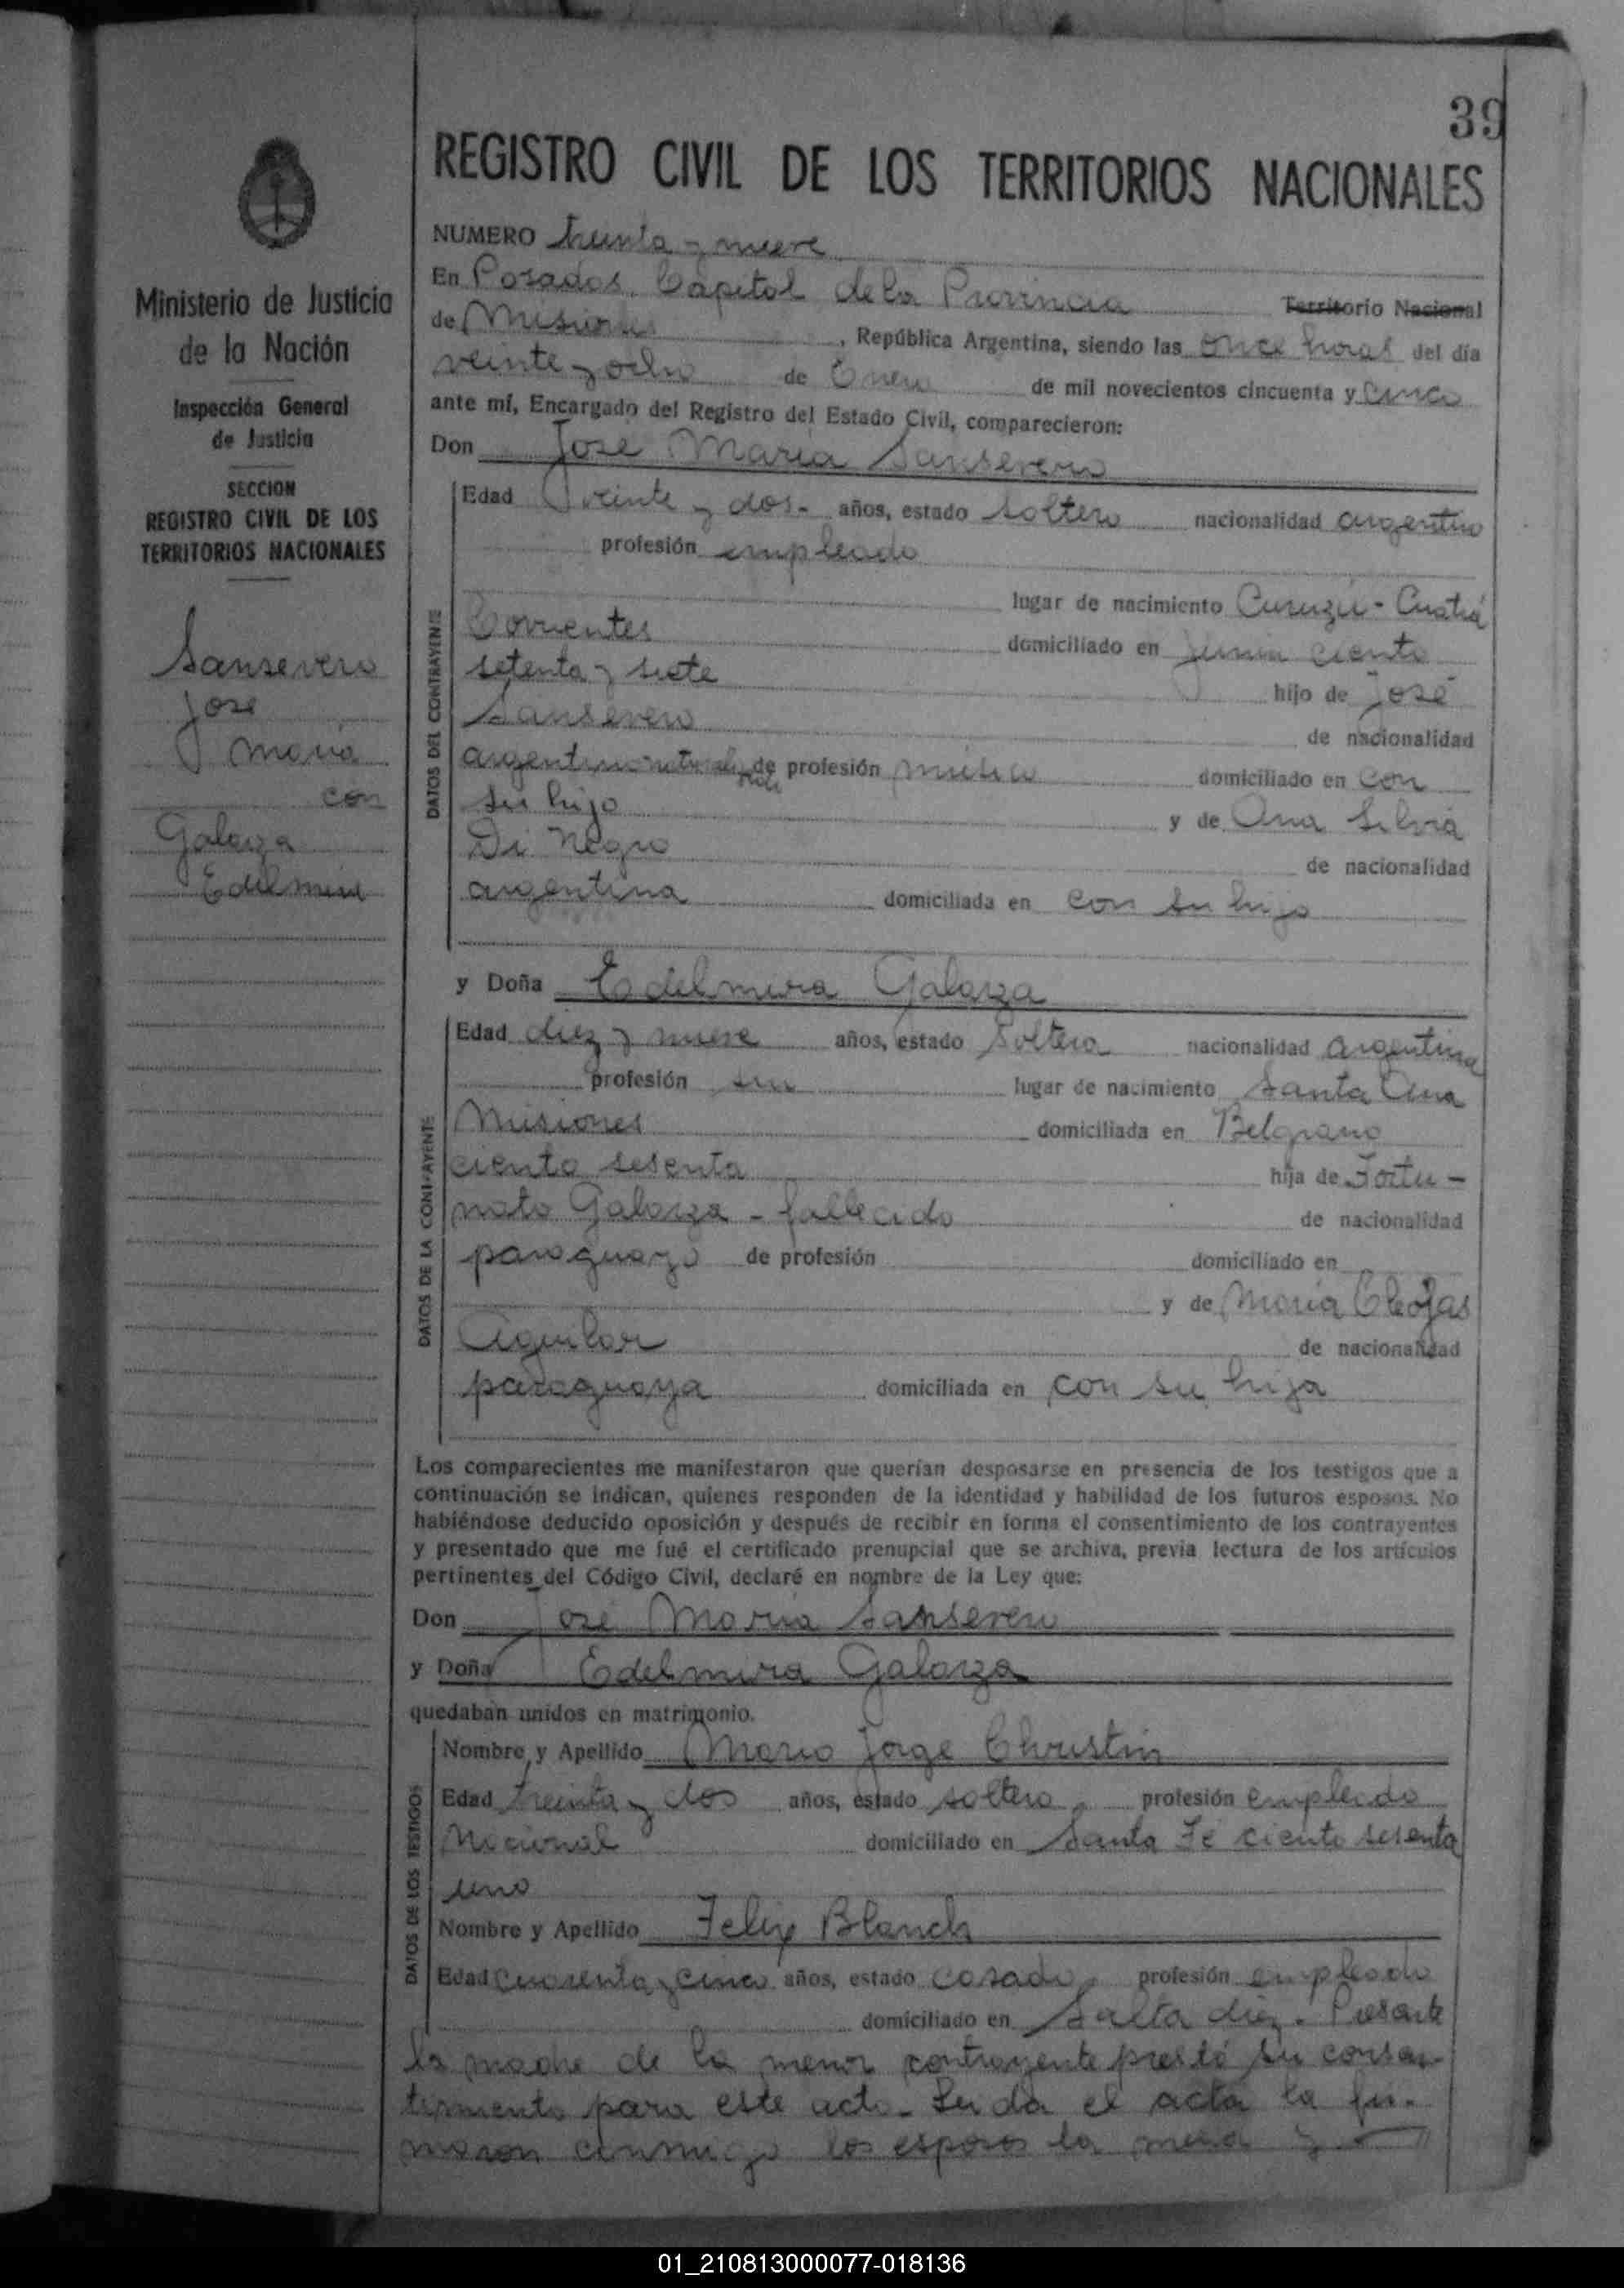 39
REGISTRO CIVIL DE LOS TERRITORIOS NACIONALES
Ministerio de Justicia
de la Nación
Inspección General
de Justicia
SECCION
REGISTRO CIVIL DE LOS
TERRITORIOS NACIONALES
Sansevero
José
María
con
Galarza
Edelmira
NUMERO treinta y nueve
En Posadas, Capital de la Provincia Territorio Nacional
de Misiones, República Argentina, siendo las once horas del día
veinte y ocho de Enero de mil novecientos cincuenta y cinco
ante mí, Encargado del Registro del Estado Civil, comparecieron:
Don José María Sansevero
DATOS DEL CONTRAYENTE
Edad veinte y dos- años, estado soltero nacionalidad argentino
profesión empleado
lugar de nacimiento Curuzú-Cuatiá
Corrientes domiciliado en Junín ciento
setenta y siete hijo de José
Sansevero de nacionalidad
argentino de profesión músico domiciliado en con
su hijo y de Ana Silvia
Di Negro de nacionalidad
argentina domiciliada en con su hijo
y Doña Edelmira Galarza
DATOS DE LA CONTRAYENTE
Edad diez y nueve años, estado soltera nacionalidad argentina
profesión sin lugar de nacimiento Santa Ana
Misiones domiciliada en Belgrano
ciento sesenta hija de Fortu-
nato Galarza - fallecido de nacionalidad
paraguayo de profesión domiciliado en
y de María Cleofas
Aguilar de nacionalidad
paraguaya domiciliada en con su hija
Los comparecientes me manifestaron que querían desposarse en presencia de los testigos que a
continuación se indican, quienes responden de la identidad y habilidad de los futuros esposos. No
habiéndose deducido oposición y después de recibir en forma el consentimiento de los contrayentes
y presentado que me fué el certificado prenupcial que se archiva, previa lectura de los artículos
pertinentes del Código Civil, declaré en nombre de la Ley que:
Don José María Sansevero
y Doña Edelmira Galarza
quedaban unidos en matrimonio.
DATOS DE LOS TESTIGOS
Nombre y Apellido Mario Jorge Christin
Edad treinta y dos años, estado soltero, profesión empleado
Nacional domiciliado en Santa Fé ciento sesenta
uno
Nombre y Apellido Felix Blanch
Edad cuarenta y cinco años, estado casado, profesión empleado
domiciliado en Salta diez. Presente
la madre de la menor contrayente prestó su consen-
timiento para este acto- Leída el acta la fir-
maron conmigo los esposos la y
01_210813000077-018136